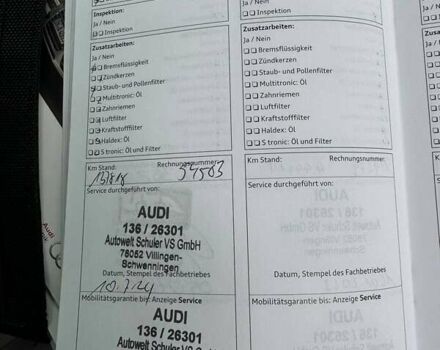 Inspektion:
Ja / Nein
Inspektion
Zusatzarbeiten:
Ja / Nein
Bremsflüssigkeit
Zündkerzen
Staub- und Pollenfilter
Multitronic: Öl
Zahnriemen
Luftfilter
Kraftstofffilter
Haldex: Öl
S tronic: Öl und Filter
Km Stand:
Rechnungsnummer:
34583
Service durchgeführt von:
AUDI
136 / 26301
Autowelt Schuler VS GmbH
78052 Villingen-
Schwenningen
Datum, Stempel des Fachbetriebes
Mobilitätsgarantie bis: Anzeige Service
AUDI
136 / 26301
Autowelt Schuler VS G
Ja / Nein
Inspektion
Zusatzarbeiten:
Ja / Nein
Bremsflüssigkeit
Zündkerzen
Staub- und Pollenfilter
Multitronic: Öl
Zahnriemen
Luftfilter
Kraftstofffilter
Haldex: Öl
S tronic: Öl und Filter
Km Stand:
Rechnungsnummer:
Service durchgeführt von:
Datum, Stempel des Fachbetriebes
Mobilitätsgarantie bis: Anzeige Service
Zusatzar
Ja / Nein
Km Stand:
Service